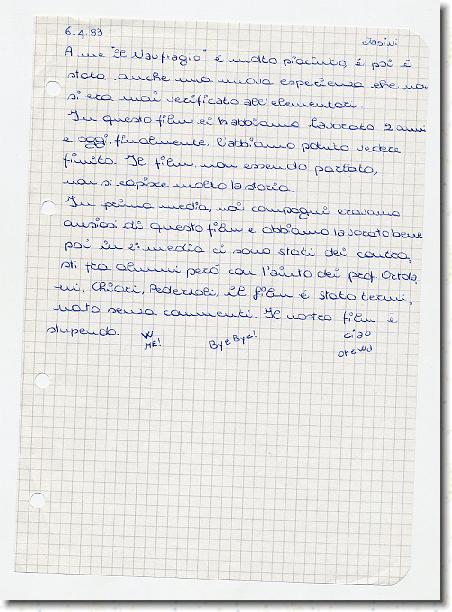 6.4.93
A me "il Naufragio" è molto piaciuto, è poi è
stata anche una nuova esperienza che non
si era mai verificato all'elementari.
In questo film ci abbiamo lavorato 2 anni
e oggi, finalmente, l'abbiamo potuto vedere
finito. Il film, non essendo parlato,
non si capisce molto la storia.
In prima media, noi compagni eravamo
ansiosi di questo film e abbiamo lavorato bene
poi in 2ª media ci sono stati dei contra,
sti fra alunni però con l'aiuto dei prof.
ni, Chiari, Pederzoli, il film è stato termi,
nato senza commenti. Il nostro film è
stupendo. W ME! Bye Bye! Ciao